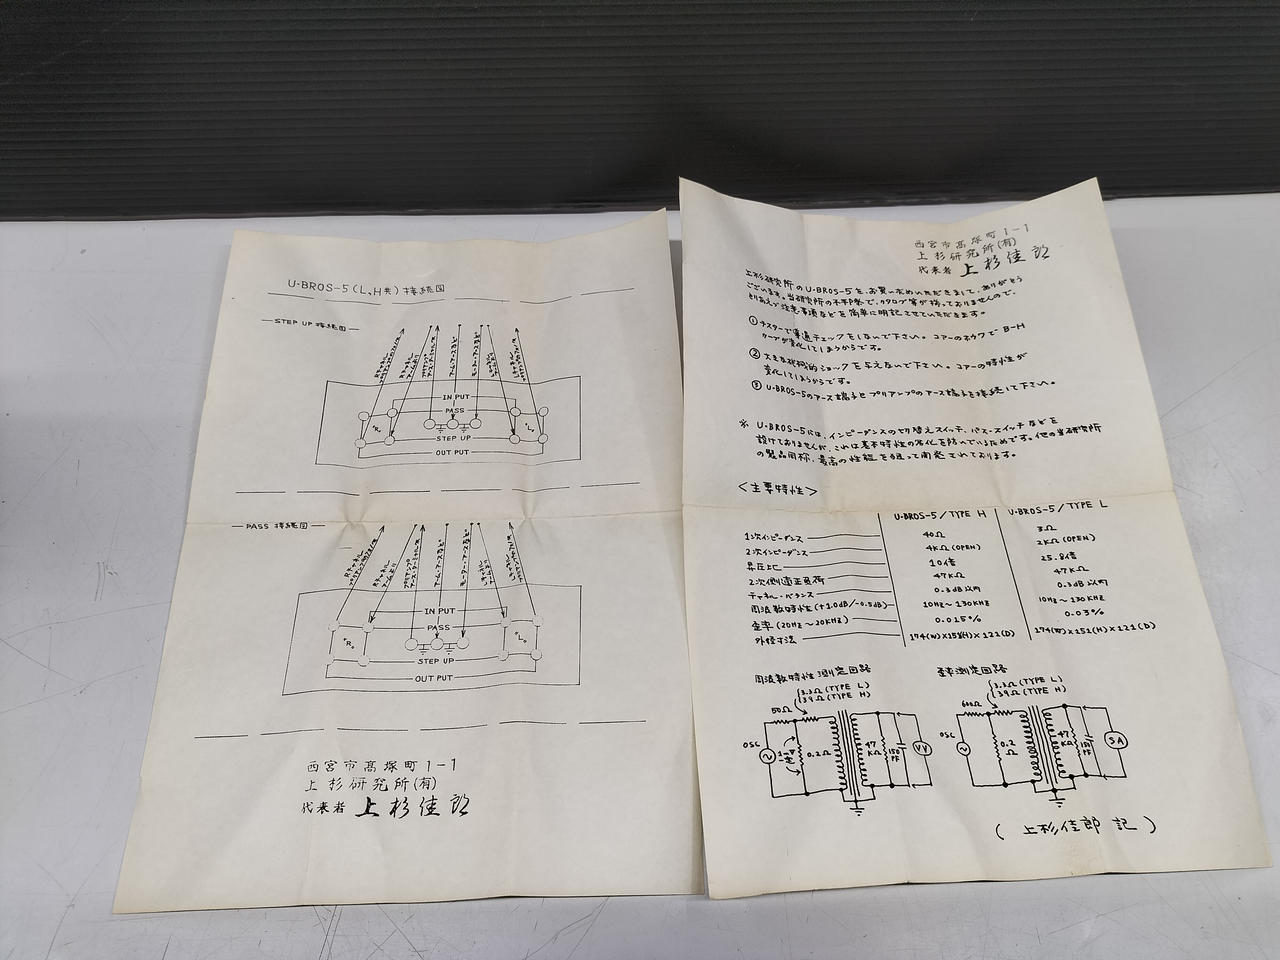 U・BROS-5(L,H共)接続図
STEP UP 接続図
IN PUT
PASS
R
L
STEP UP
OUT PUT
PASS 接続図
IN PUT
PASS
R
L
STEP UP
OUT PUT
西宮市高塚町1-1
上杉研究所(有)
代表者 上杉佳郎
西宮市高塚町1-1
上杉研究所(有)
代表者 上杉佳郎
上杉研究所のU・BROS-5を、お買い求めいただきまして、ありがとう
ございます。当研究所の不手際で、カタログ等が揃っておりませんので、
とりあえず注意事項などを簡単に明記させていただきます。
① テスターで導通チェックをしないで下さい。コアーのネクワで B-H
カーブが変化してしまうからです。
② 大きな機械的ショックを与えないで下さい。コアーの特性が
変化してしまうからです。
③ U・BROS-5のアース端子とプリアンプのアース端子を接続して下さい。
※ U・BROS-5には、インピーダンスの切り替えスイッチ、パス・スイッチなどを
設けておりませんが、これは基本特性の劣化を防いでいるためです。他の当研究所
の製品同様、最高の性能を狙って開発されております。
<主要特性>
U・BROS-5/TYPE H U・BROS-5/TYPE L
1次インピーダンス 40Ω 3Ω
2次インピーダンス 4KΩ(OPEN) 2KΩ(OPEN)
昇圧比 10倍 25.8倍
2次側適正負荷 47KΩ 47KΩ
チャネル・バランス 0.3dB以内 0.3dB以内
周波数特性(+1.0dB/-0.5dB) 10Hz～130KHz 10Hz～130KHz
歪率(20Hz～20KHz) 0.015% 0.03%
外径寸法 174(W)×151(H)×121(D) 174(W)×151(H)×121(D)
周波数特性測定回路
3.3Ω(TYPE L)
39Ω(TYPE H)
50Ω
OSC
0.2Ω
47KΩ
150PF
VV
歪率測定回路
3.3Ω(TYPE L)
39Ω(TYPE H)
600Ω
OSC
0.2Ω
47KΩ
150PF
SA
(上杉佳郎 記)